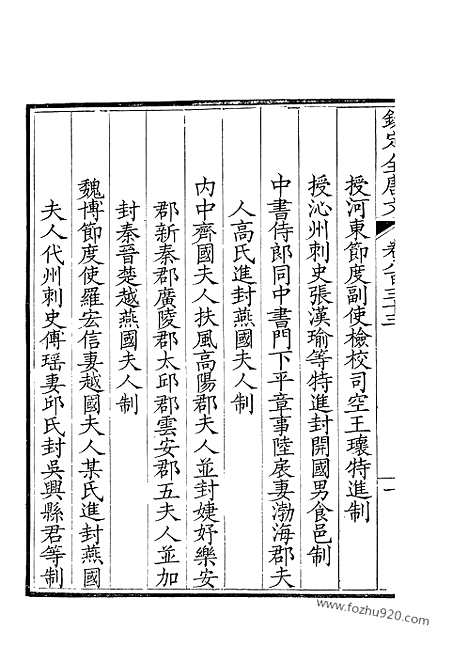 欽定全唐文 卷八百三十三 一
授河東節度副使檢校司空王瓌特進制
授沁州刺史張漢瑜等特進封開國男食邑制
中書侍郎同中書門下平章事陸扆妻渤海郡夫
人高氏進封燕國夫人制
內中齊國夫人扶風高陽郡夫人並封婕妤樂安
郡新秦郡廣陵郡太邱郡雲安郡五夫人並加
封秦晉楚越燕國夫人制
魏博節度使羅宏信妻越國夫人某氏進封燕國
夫人代州刺史傅瑶妻邱氏封吳興縣君等制
www.fozhu920.com